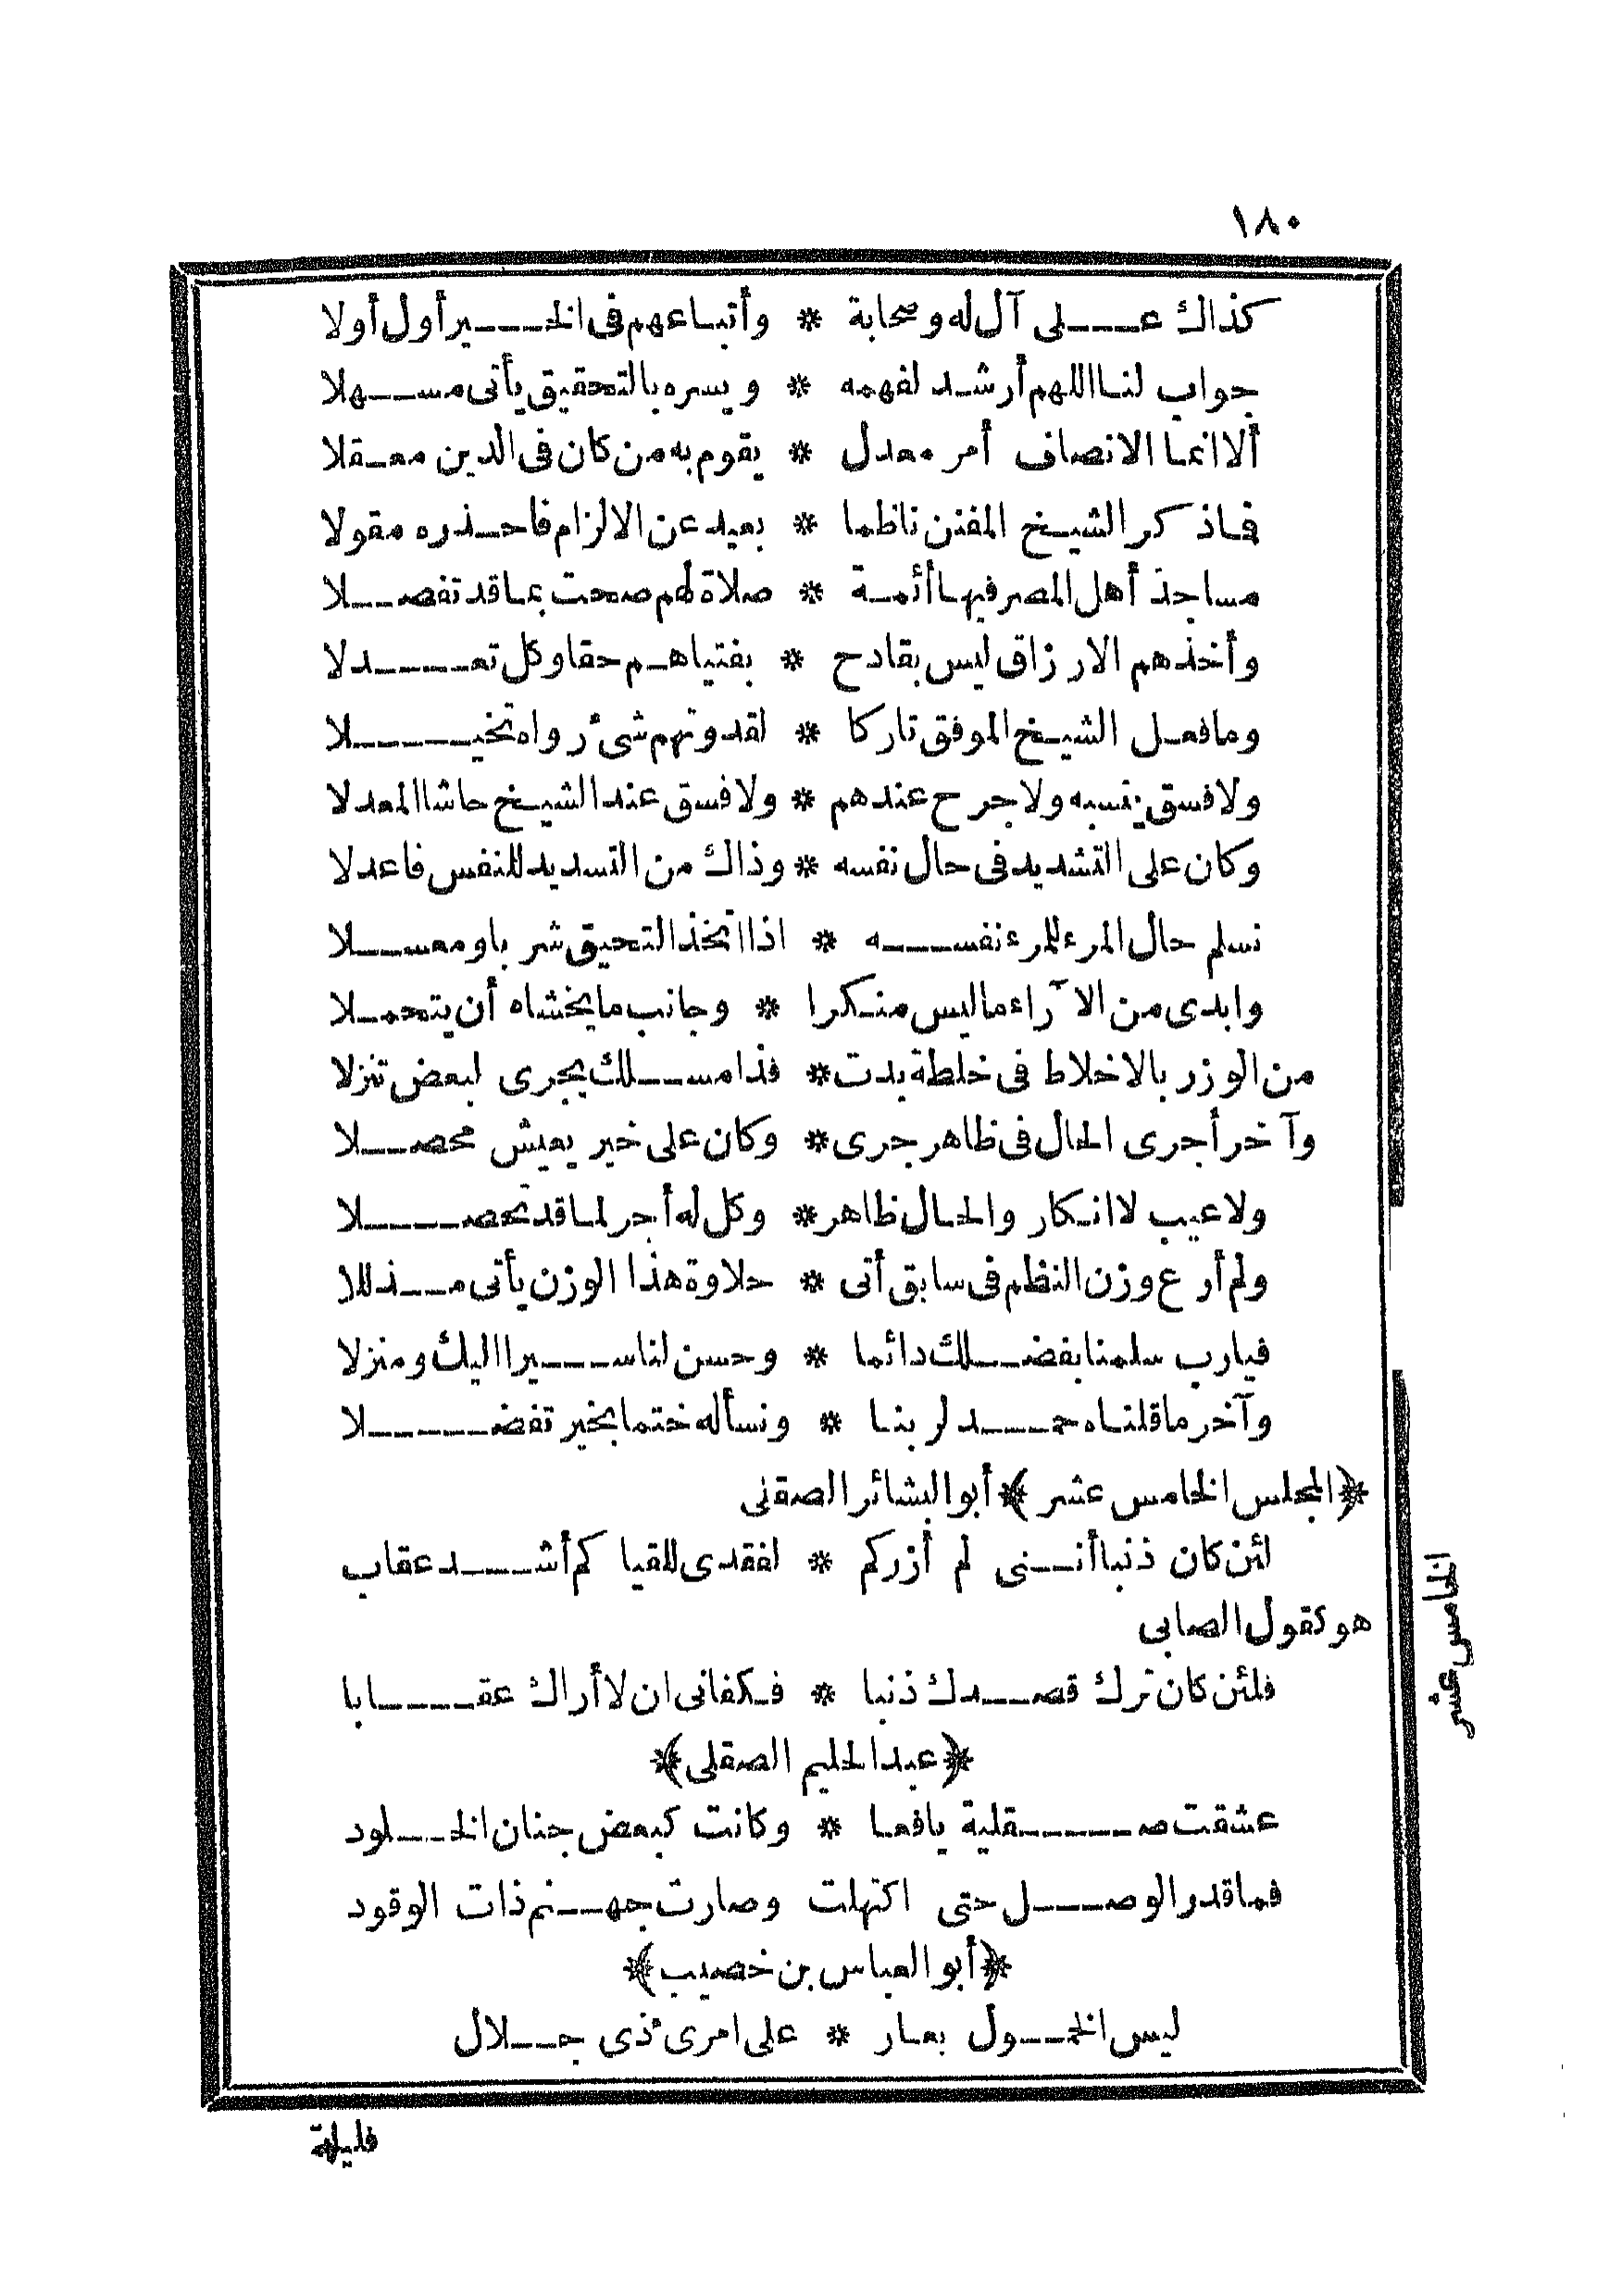 ١٨٠
كذاك على آل له وصحابة * وأتباعهم فى الخير أول أولا
جواب لنا اللهم أرشد لفهمه * ويسره بالتحقيق يأتى مسهلا
ألا انما الانصاف أمر معدل * يقوم به من كان فى الدين معقلا
فاذ كر الشيخ المفنن ناظما * بعيد عن الالزام فاحذره مقولا
مساجد أهل المصر فيها أئمة * صلاة لهم صحت بما قد تفصلا
وأخذهم الارزاق ليس بقادح * بفتياهم حقا وكل تعدلا
وما فعل الشيخ الموفق تاركا * لقدوتهم شئ رواه تخيلا
ولا فسق ينسبه ولا جرح عندهم * ولا فسق عند الشيخ حاشا المعدلا
وكان على التشديد فى حال نفسه * وذاك من التسديد للنفس فاعدلا
نسلم حال المرء للمرء نفسه * اذا اتخذ التحيق شربا ومعسلا
وابدى من الآراء ما ليس منكرا * وجانب ما يخشاه أن يتحملا
من الوزر بالاخلاط فى خلطة بدت * فذا مسلك يجرى لبعض تنزلا
وآخر أجرى الحال فى ظاهر جرى * وكان على خير يعيش محصلا
ولا عيب لا انكار والحال ظاهر * وكل له أجر لما قد تحصلا
ولم أر ع وزن النظم فى سابق أتى * حلاوة هذا الوزن يأتى مذللا
فيارب سلمنا بفضلك دائما * وحسن لنا سيرا اليك ومنزلا
وآخر ما قلناه حمد لربنا * ونسأله ختما بخير تفضلا
﴿المجلس الخامس عشر﴾ أبو البشائر الصقلى
لئن كان ذنبا أننى لم أزركم * لفقدى للقياكم أشد عقاب
هو كقول الصابى
فلئن كان ترك قصدك ذنبا * فكفانى ان لا أراك عقابا
﴿عبد الحليم الصقلى﴾
عشقت صقلية يافعا * وكانت كبعض جنان الخلود
فما قدر الوصل حتى اكتهلت وصارت جهنم ذات الوقود
﴿أبو العباس بن خصيب﴾
ليس الخمول بعار * على امرئ ذى جلال
فليلة
الخامس عشر